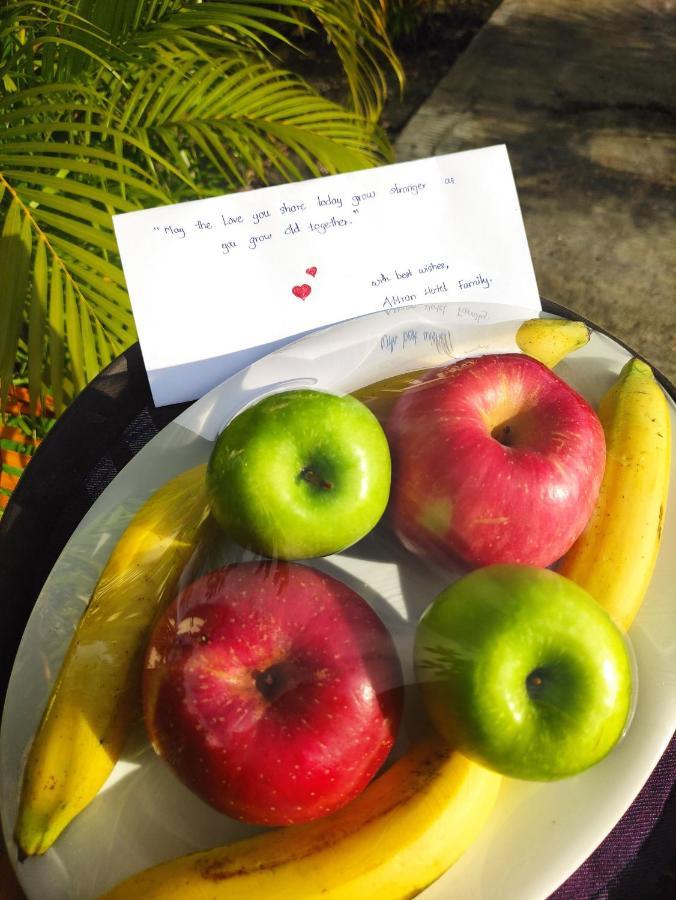 "May the Love you share today grow stronger as
you grow old together."
with best wishes,
Hotel Family.